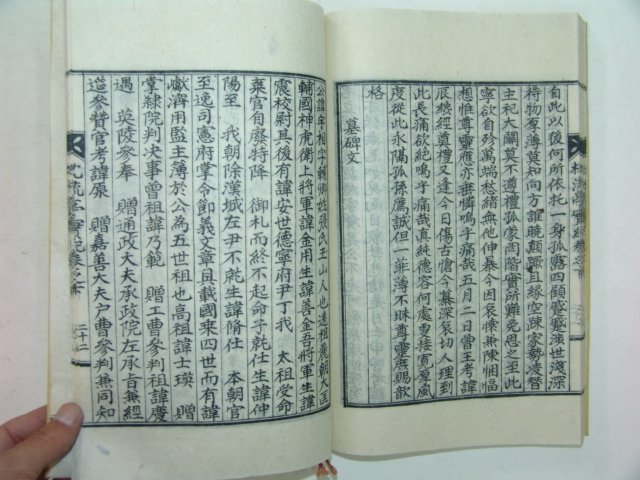 自此以後何所依托一身孤露四顧蹙蹙涉世淺深
待物厚薄莫知向方曉顚蹶且緣空疎家勢凌替
主祀大闕莫不遵禮孤懞罔階實所難免思之至此
寧欲自殄萬端愁緒無他伸暴今因哀悰兼陳悃愊
想惟尊靈應亦垂憐嗚乎痛哉五月二日曾王考諱
辰縱經眞禮又違今日傷古愴今深哀切人理到
此長痛欲絶嗚乎痛哉眞純德容何處更接寬厚風
度從此永隔孤孫蔑誠但一菲薄不昧尊靈庶賜歆
格
墓碑文
公諱字相字輔卿姓張氏玉山人也遠祖麗朝大匡
輔國神虎衛上將軍諱金用生諱善金吾將軍生諱
震校尉其後有諱安世德寧府尹丁我 太祖受命
棄官自廢特降 御札而終不起命子就仕生諱仲
陽至 我朝除漢城左尹不就生諱脩仕 本朝官
至逸司憲府掌令節義文章且載國乘四世而有諱
巘濟用監主薄於公爲五世祖也高祖諱士瑛 贈
掌隷院判決事曾祖諱乃範 贈工曹參議祖諱慶
遇 英陵參奉 贈通政大夫承政院左承旨兼經
筵參贊官考諱 贈嘉善大夫戶曹參判兼同知
三十二